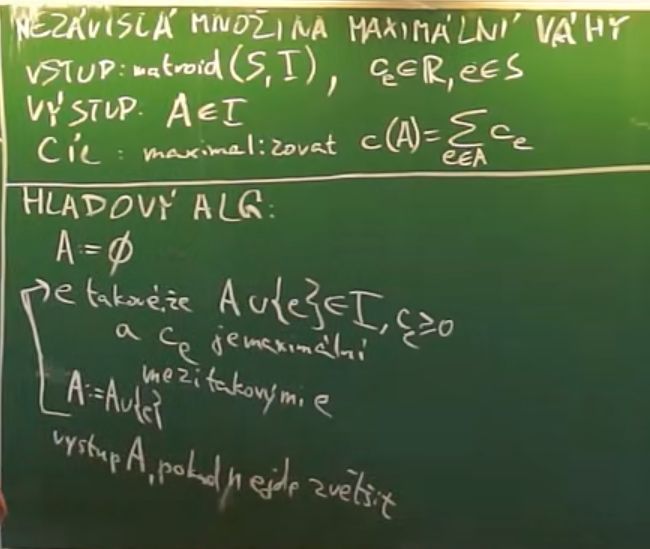 NEZÁVISLÁ MNOŽINA MAXIMÁLNÍ VÁHY
VSTUP: matroid (S,I), cₑ∈ℝ, e∈S
VÝSTUP: A∈I
CÍL: maximalizovat c(A)=∑_{e∈A} cₑ
HLADOVÝ ALG:
A:=∅
→ e takové, že A∪{e}∈I, cₑ≥0
a cₑ je maximální
mezi takovými e
A:=A∪{e}
výstup A, pokud nejde zvětšit